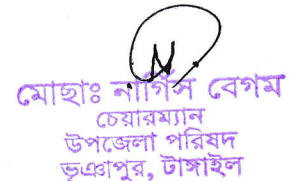 মোছাঃ নার্গিস বেগম
চেয়ারম্যান
উপজেলা পরিষদ
ভূঞাপুর, টাঙ্গাইল